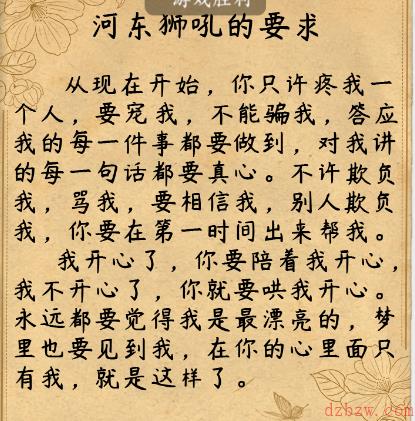 游戏胜利
河东狮吼的要求
从现在开始，你只许疼我一
个人，要宠我，不能骗我，答应
我的每一件事都要做到，对我讲
的每一句话都要真心。不许欺负
我，骂我，要相信我，别人欺负
我，你要在第一时间出来帮我。
我开心了，你要陪着我开心，
我不开心了，你就要哄我开心。
永远都要觉得我是最漂亮的，梦
里也要见到我，在你的心里面只
有我，就是这样了。
dzbzw.com